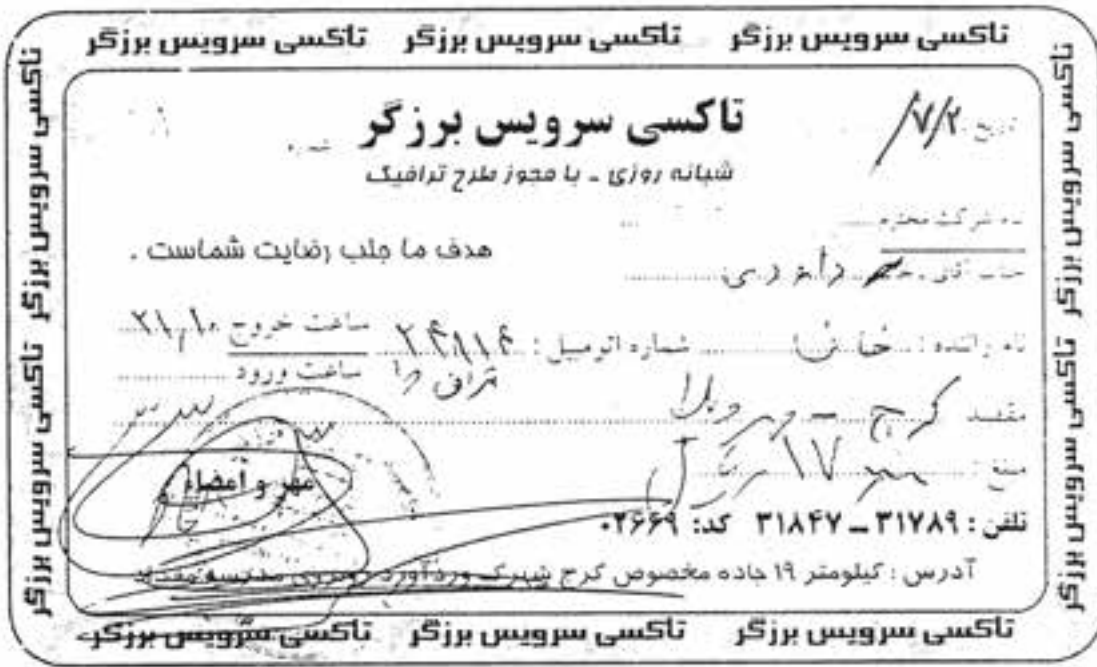 تاکسی سرویس برزگر تاکسی سرویس برزگر تاکسی سرویس برزگر
تاکسی سرویس برزگر تاکسی سرویس برزگر
تاکسی سرویس برزگر
تاریخ ۷/۲/
شماره
شبانه روزی ـ با مجوز طرح ترافیک
نام شرکت محترم
هدف ما جلب رضایت شماست .
جناب آقای
نام راننده : شماره اتومبیل : ۲۴۸۱۴ ساعت خروج ۲۱،۱۰
ساعت ورود
مقصد کرج ـ
مبلغ : ۱۷
مهر و امضاء
تلفن : ۳۱۷۸۹ ــ ۳۱۸۴۷ کد: ۰۲۶۶۹
آدرس : کیلومتر ۱۹ جاده مخصوص کرج شهرک وردآورد روبروی مدرسه
تاکسی سرویس برزگر تاکسی سرویس برزگر
تاکسی سرویس برزگر تاکسی سرویس برزگر تاکسی سرویس برزگر